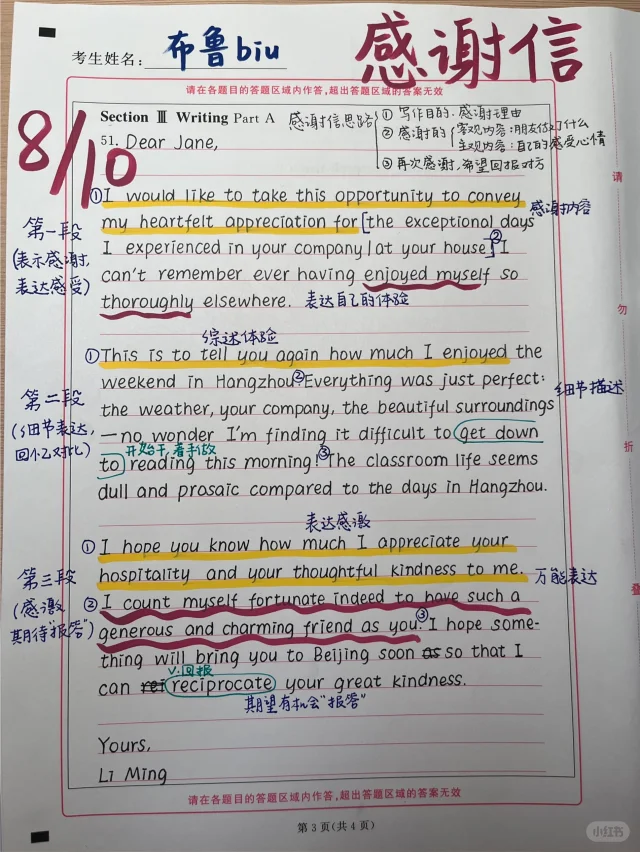 考生姓名: 布鲁biu
感谢信
请在各题目的答题区域内作答,超出答题区域的答案无效
8/10
Section Ⅲ Writing Part A
感谢信思路
① 写作目的:感谢理由
② 感谢的
客观内容:朋友做了什么
主观内容:自己的感受心情
③ 再次感谢,希望回报对方
51. Dear Jane,
①I would like to take this opportunity to convey
my heartfelt appreciation for [the exceptional days
感谢内容
第一段
(表示感谢,
表达感受)
I experienced in your company / at your house.] ②I
can't remember ever having enjoyed myself so
thoroughly elsewhere. 表达自己的体验
综述体验
①This is to tell you again how much I enjoyed the
weekend in Hangzhou.②Everything was just perfect:
细节描述
第二段
(细节表达,
回忆对比)
the weather, your company, the beautiful surroundings
—no wonder I'm finding it difficult to get down
开始干,着手做
to reading this morning!③The classroom life seems
dull and prosaic compared to the days in Hangzhou.
表达感激
①I hope you know how much I appreciate your
hospitality and your thoughtful kindness to me. 万能表达
第三段
(感激,
期待"报答")
②I count myself fortunate indeed to have such a
generous and charming friend as you.③I hope some-
thing will bring you to Beijing soon as so that I
v.回报
can rei reciprocate your great kindness.
期望有机会"报答"
Yours,
Li Ming
请在各题目的答题区域内作答,超出答题区域的答案无效
第 3 页(共 4 页)
请
勿
折
叠
小红书